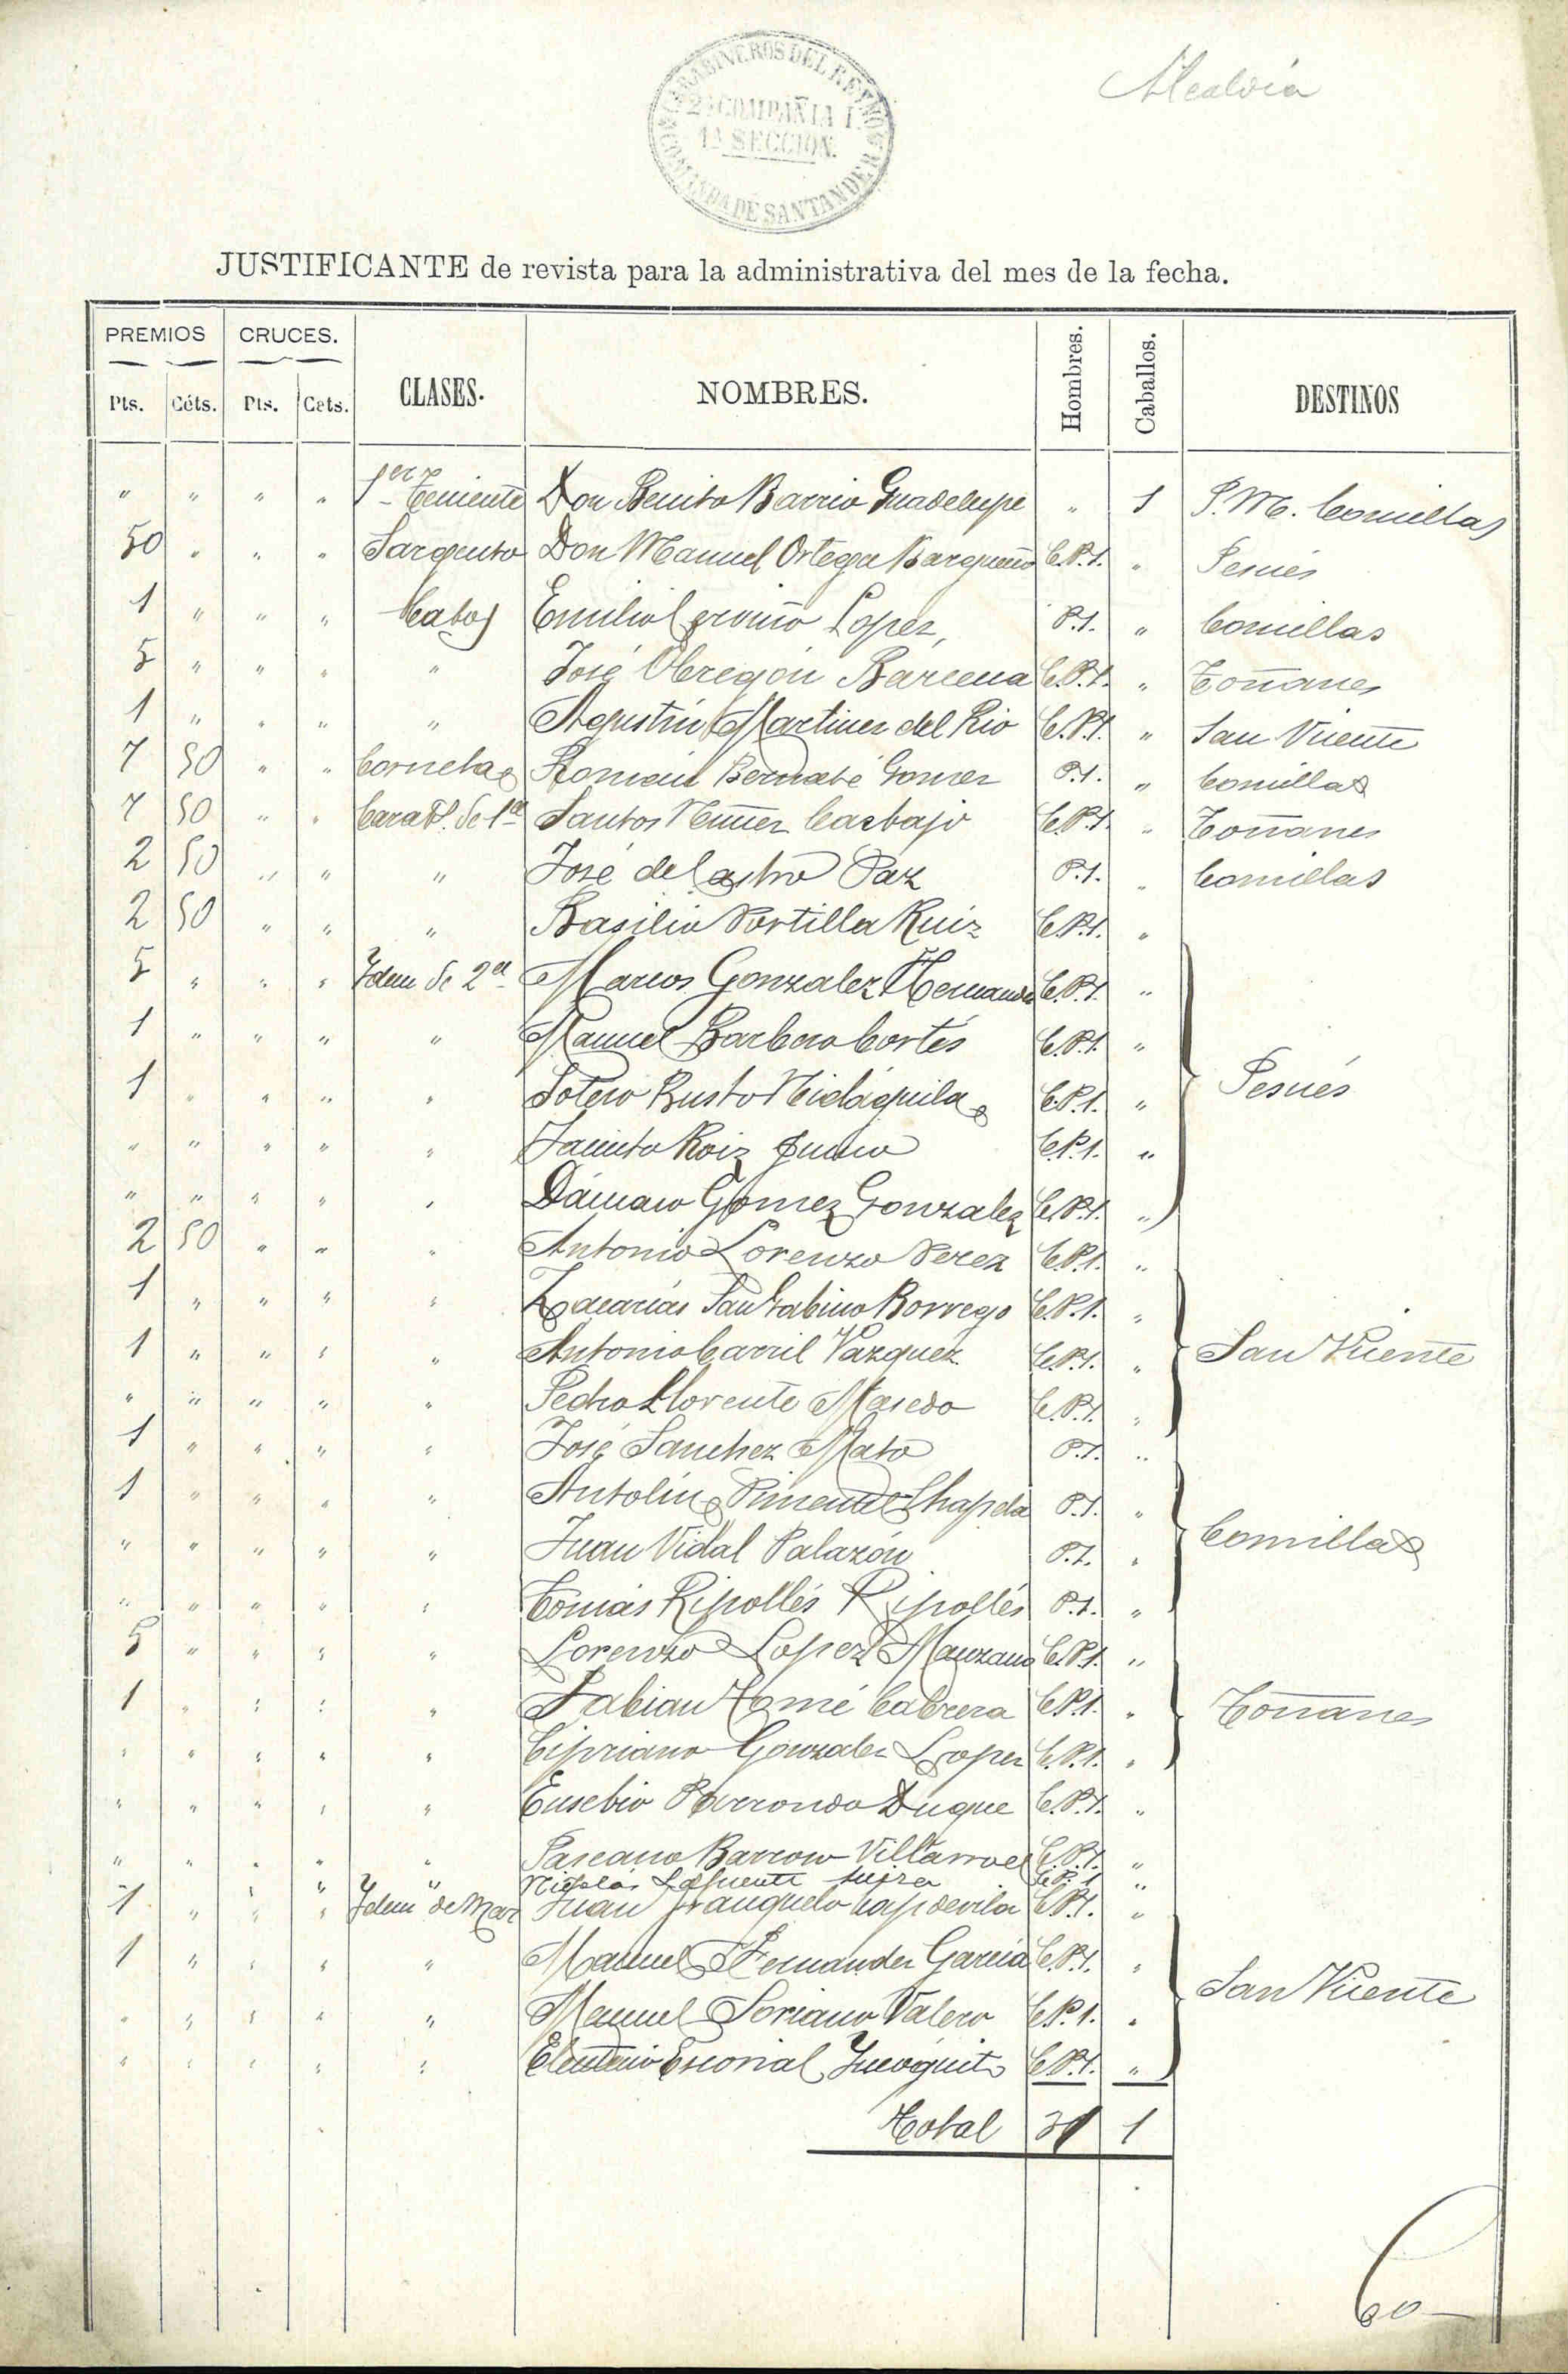 Alcaldía
CARABINEROS DEL REYNO
2ª COMPAÑIA
1ª SECCION.
COMANDA DE SANTANDER
JUSTIFICANTE de revista para la administrativa del mes de la fecha.
PREMIOS CRUCES. CLASES. NOMBRES. Hombres. Caballos. DESTINOS
Pts. Céts. Pts. Cets.
" " " " 1er Teniente Don Benito Barrio Guadelupe " 1 P.M. Comillas
50 " " " Sargento Don Manuel Ortega Bargueño C.P.1. " Pesués
1 " " " Cabos Emilio Lopez, P.1. " Comillas
5 " " " " José Obregón Bárcena C.P.1. " Toñanes
1 " " " " Agustín Martinez del Rio C.P.1. " San Vicente
7 50 " " Corneta Román Bernabé Gomez P.1. " Comillas
7 50 " " Carabs. de 1ª Santos Nuñez Carbajo C.P.1. " Toñanes
2 50 " " " José de Castro Paz P.1. " Comillas
2 50 " " " Basilio Portilla Ruiz C.P.1. "
5 " " " Idem de 2ª Marcos Gonzalez Hernandz C.P.1. "
1 " " " " Manuel Barbero Cortés C.P.1. "
1 " " " " Sotero Busto Nidáguila C.P.1. " Pesués
" " " " " Jacinto Roiz C.P.1. "
" " " " " Dámaso Gomez Gonzalez C.P.1. "
2 50 " " " Antonio Lorenzo Perez C.P.1. "
1 " " " " Zacarías San Gabino Borrego C.P.1. "
1 " " " " Antonio Carril Vazquez C.P.1. " San Vicente
" " " " " Pedro Llorente Masedo C.P.1. "
1 " " " " José Sanchez Mato P.1. "
1 " " " " Antolín Pimentel Chapela P.1. "
" " " " " Juan Vidal Palazón P.1. " Comillas
" " " " " Tomás Ripollés Ripollés P.1. "
5 " " " " Lorenzo Lopez Manzano C.P.1. "
1 " " " " Fabian Tomé Cabrera C.P.1. " Toñanes
" " " " " Cipriano Gonzalez Lopez C.P.1. "
" " " " " Eusebio Barrondo Duque C.P.1. "
" " " " " Pascasio Villarroel C.P.1. "
" " " Nicolas Lafuente C.P.1 "
1 " " " Idem de Mar Juan Franquelo Capdevila C.P.1. "
1 " " " " Manuel Fernandez García C.P.1. "
" " " " " Manuel Soriano Valero C.P.1. " San Vicente
" " " " " Eleuterio Escorial Incógnito C.P.1. "
Total 31 1